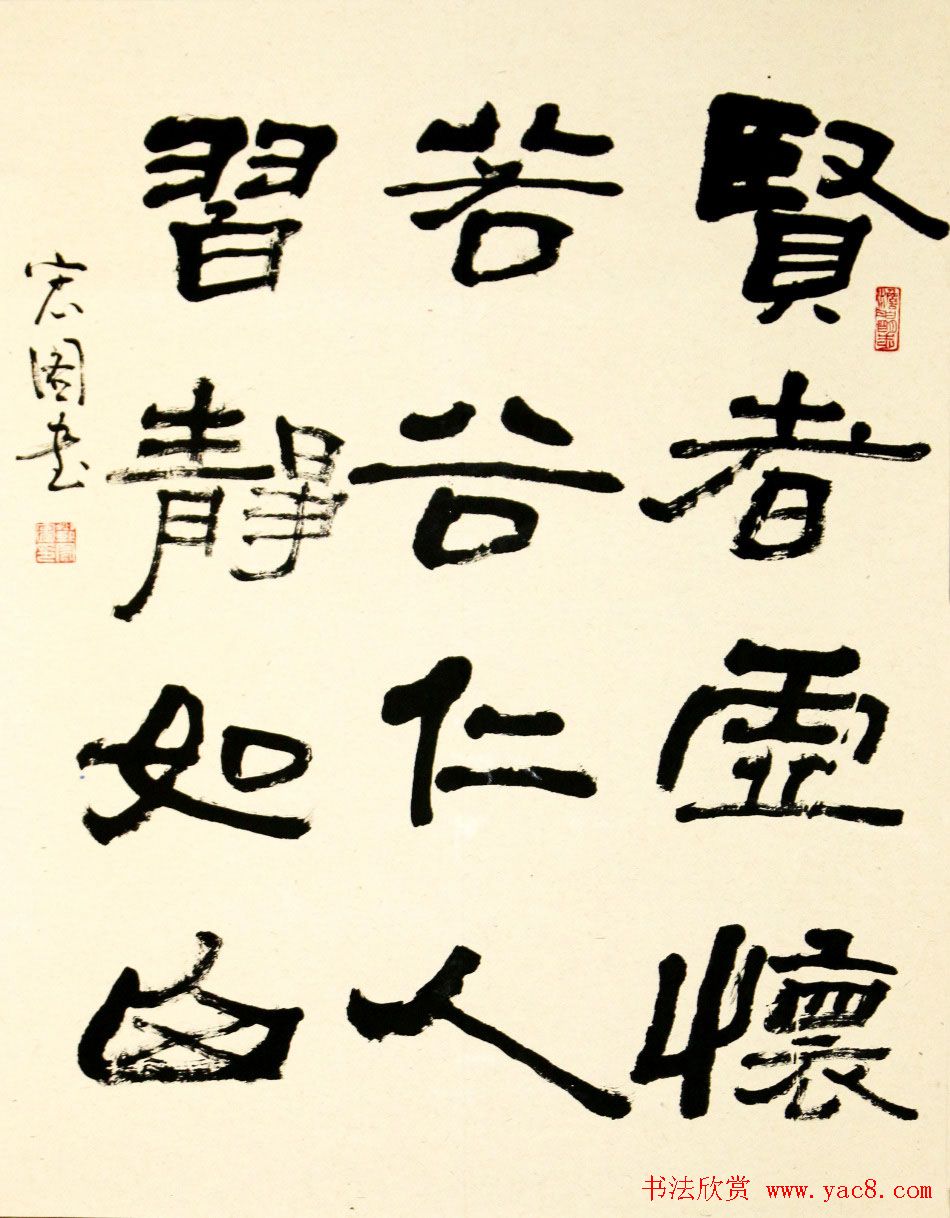 賢者虛懷
若谷仁人
習靜如山
宏圖書
书法欣赏 www.yac8.com